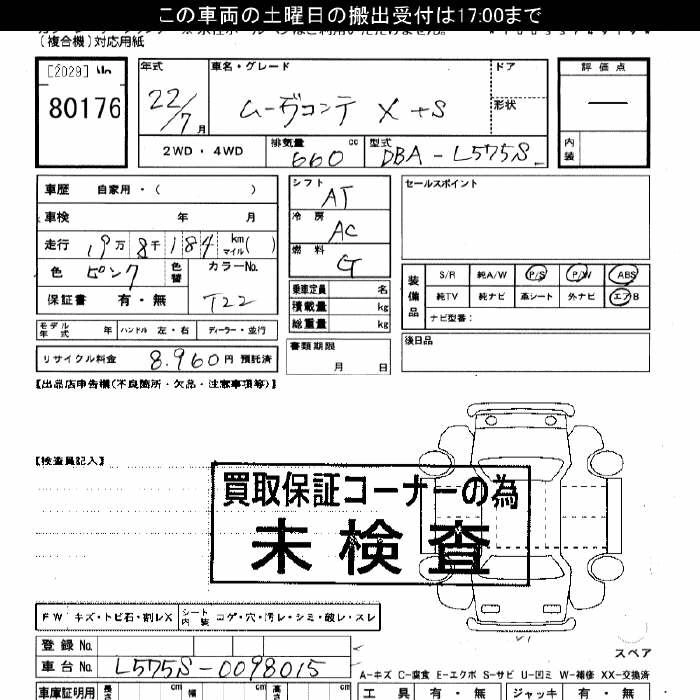 この車両の土曜日の搬出受付は17:00まで
(複合機)対応用紙
[2029] No
80176
年式 22/7月
車名・グレード ムーヴコンテ X +S
ドア
形状
評価点 —
内装
2WD・4WD
排気量 660 cc
型式 DBA-L575S
車歴 自家用・( )
車検 年 月
走行 19万8千184 km マイル( )
色 ピンク 色替 カラーNo. T22
保証書 有・無
シフト AT
冷房 AC
燃料 G
乗車定員 名
積載量 kg
総重量 kg
セールスポイント
装備品 S/R 純A/W P/S P/W ABS
純TV 純ナビ 革シート 外ナビ エアB
ナビ型番:
モデル年式 年 ハンドル 左・右 ディーラー・並行
リサイクル料金 8,960円 預託済
書類期限 月 日
後日品
【出品店申告欄(不良箇所・欠品・注意事項等)】
【検査員記入】
買取保証コーナーの為
未検査
FW キズ・トビ石・割レX
シート内装 コゲ・穴・汚レ・シミ・破レ・スレ
登録No.
車台No. L575S-0098015
スペア
A-キズ C-腐食 E-エクボ S-サビ U-凹ミ W-補修 XX-交換済
車庫証明用 長さ cm 幅 cm 高さ cm
工具 有・無 ジャッキ 有・無